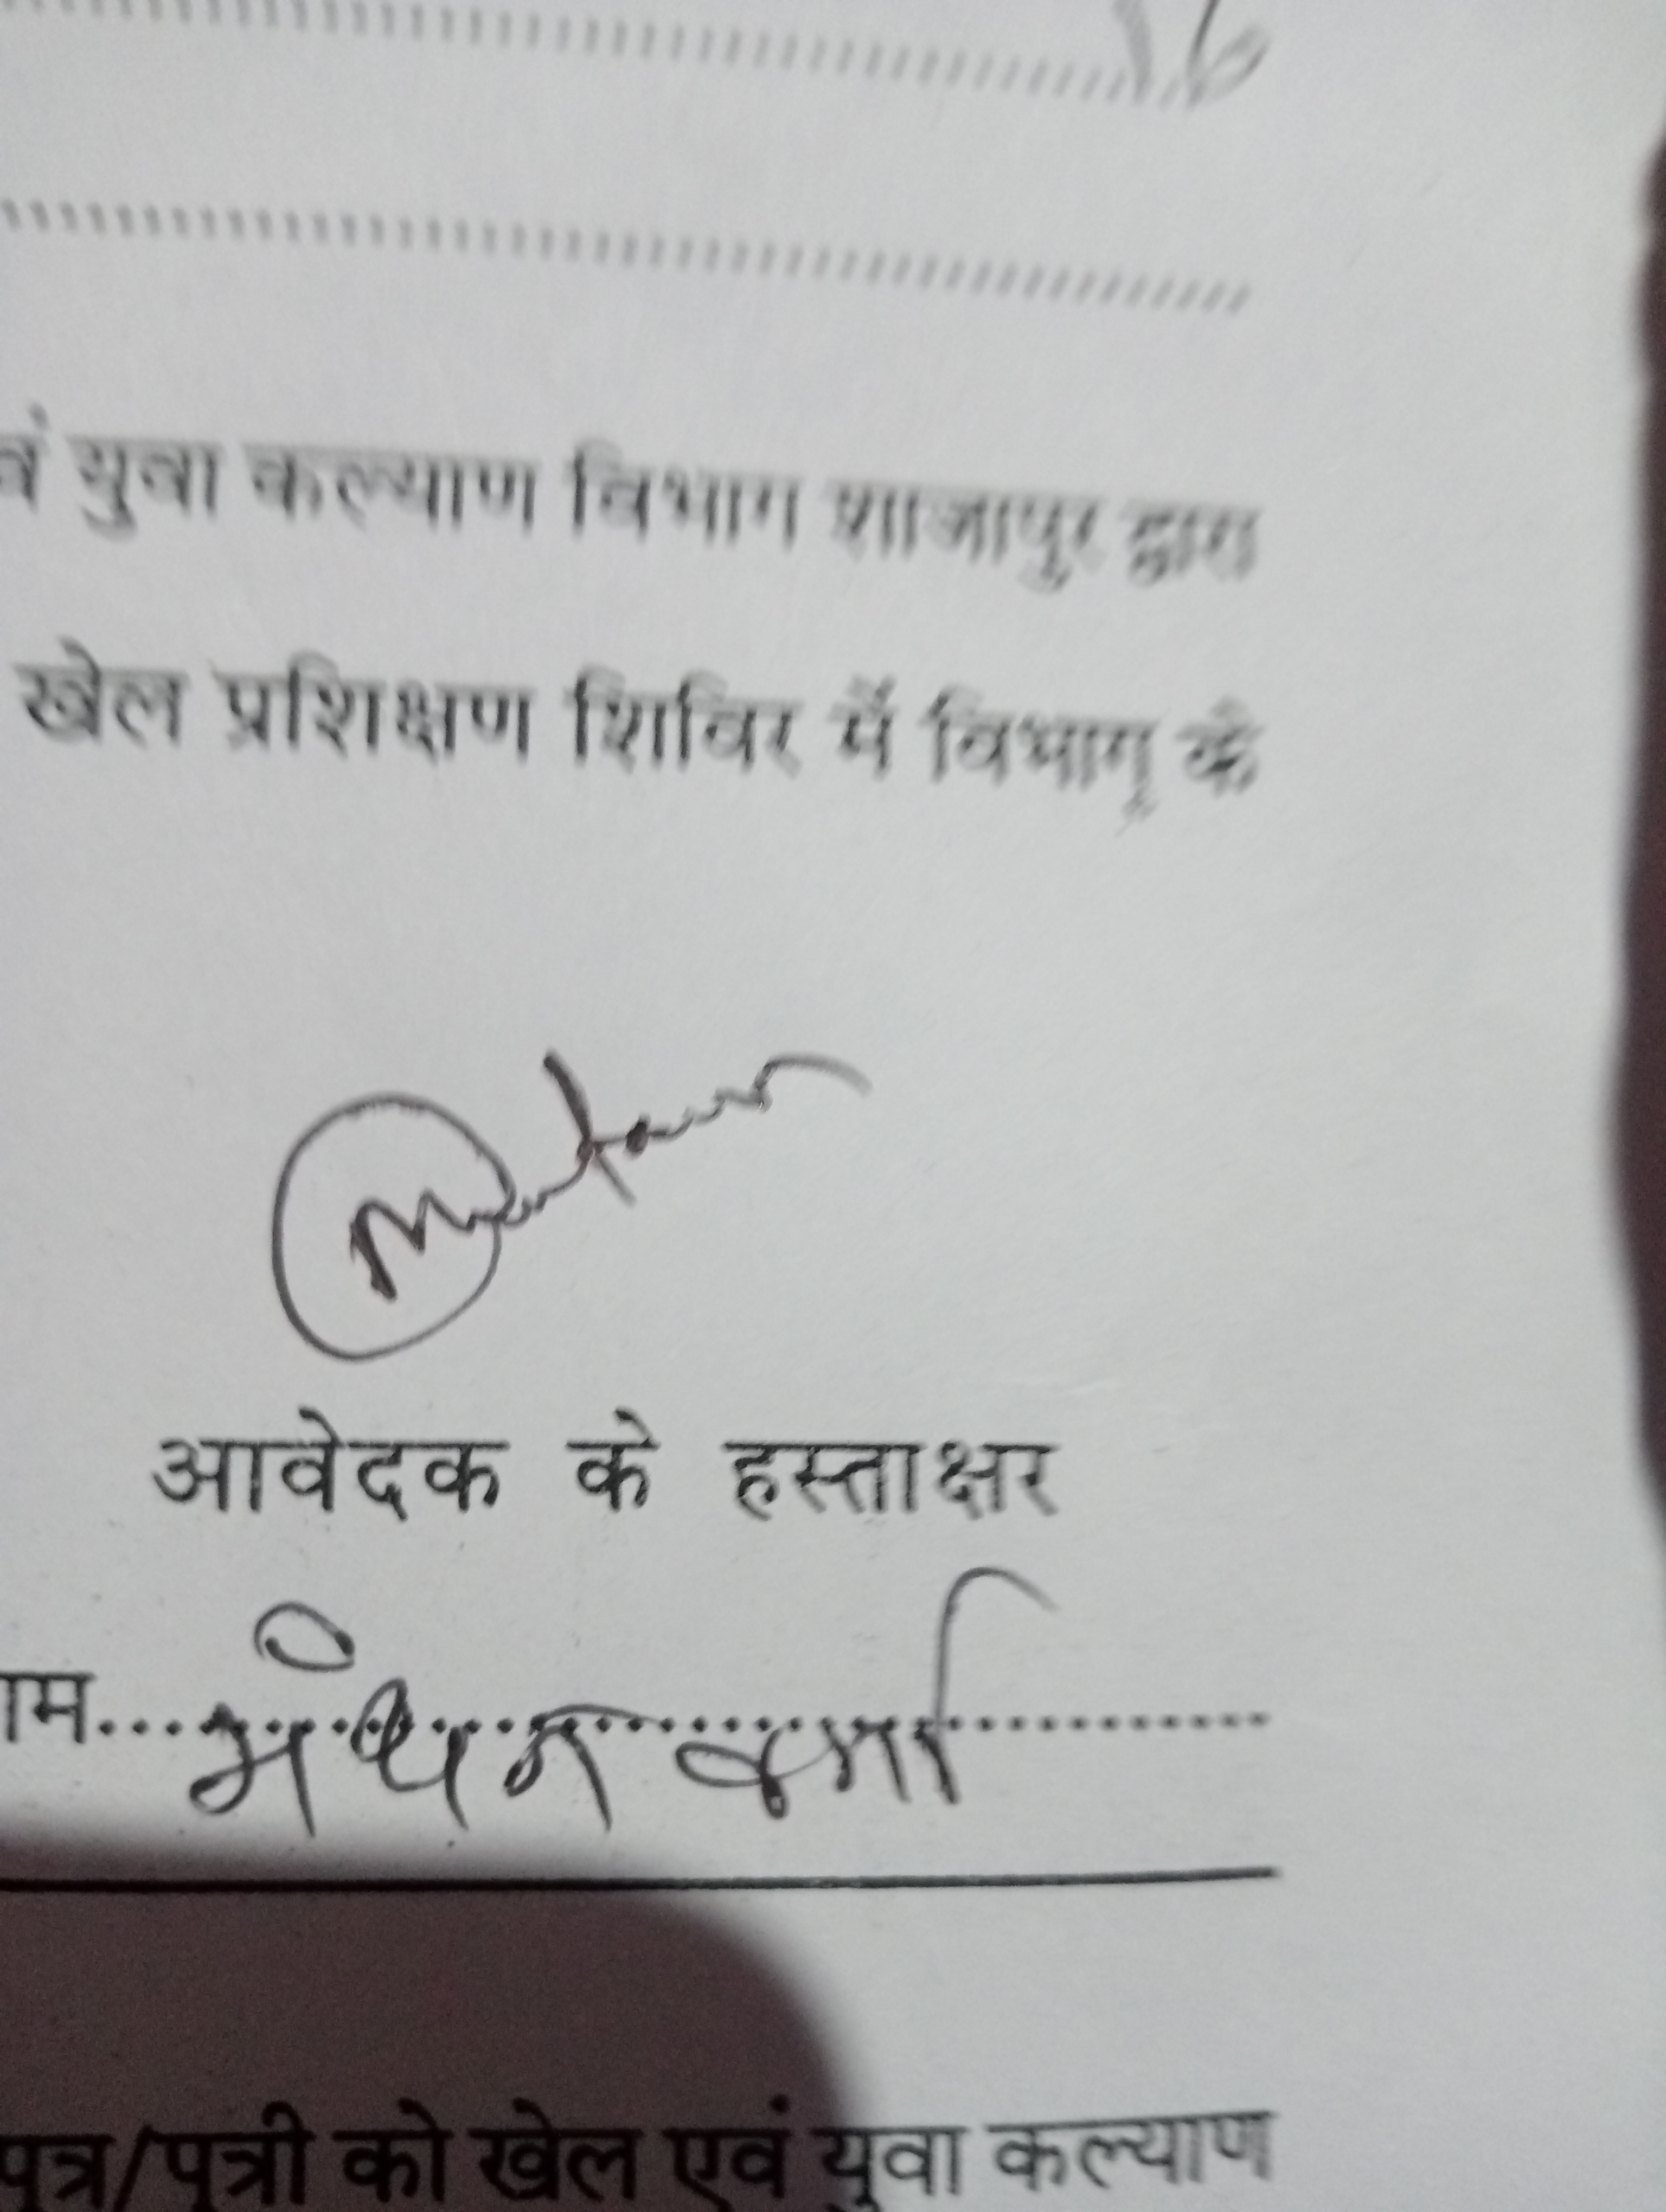 16
वं युवा कल्याण विभाग शाजापुर द्वारा
खेल प्रशिक्षण शिविर में विभाग के
आवेदक के हस्ताक्षर
ाम.... मंथन वर्मा ............
पुत्र/पुत्री को खेल एवं युवा कल्याण